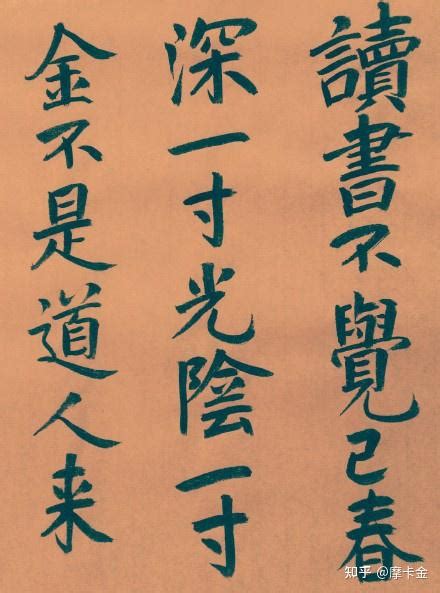 讀書不覺已春
深一寸光陰一寸
金不是道人來
知乎 @摩卡金